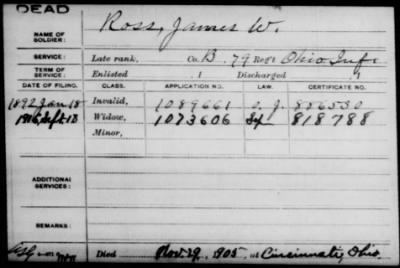 DEAD
NAME OF SOLDIER: Ross, James W.
SERVICE: Late rank, Co. B, 79 Reg't Ohio Inf.
TERM OF SERVICE: Enlisted , 1 Discharged , 1
DATE OF FILING. CLASS. APPLICATION NO. LAW. CERTIFICATE NO.
1892 Jan 18 Invalid, 1089661 886530
Sept 18 Widow, 1073606 818788
Minor,
ADDITIONAL SERVICES:
REMARKS:
Died Nov. 29, 1905, at Cincinnati, Ohio